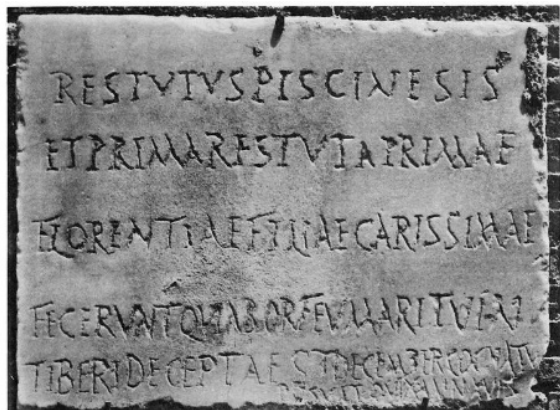 RESTVTVS PISCINESIS
ET PRIMA RESTVTA PRIMAE
FLORENTIAE FILIAE CARISSIMAE
FECERVNT QVI AB ORFEV MARITV IN
TIBERI DECEPTA EST DECEMBER COGNATV
POSVIT